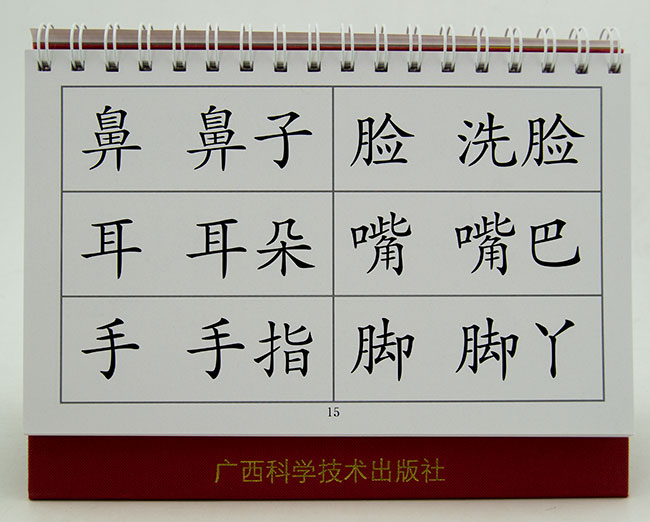 鼻 鼻子 脸 洗脸
耳 耳朵 嘴 嘴巴
手 手指 脚 脚丫
15
广西科学技术出版社